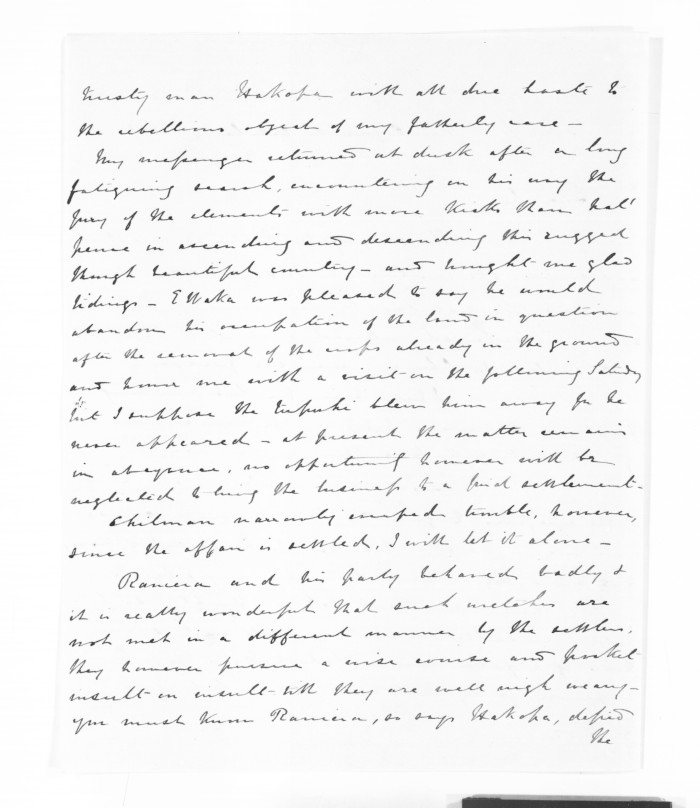 trusty man Hakopa with all due haste to
the rebellious object of my fatherly care -
My messenger returned at dusk after a long
fatiguing search, encountering on his way the
fury of the elements with more kicks than half
pence in ascending and descending this rugged
though beautiful country - and brought me glad
tidings - E Waka was pleased to say he would
abandon his occupation of the land in question
after the removal of the crops already in the ground
and honor me with a visit on the following Saturday
but I suppose the tupuhi blew him away for he
never appeared - at present the matter remains
in abeyance, no opportunity however will be
neglected to bring the business to a final settlement -
Chilman narrowly escaped trouble, however,
since the affair is settled, I will let it alone -
Raniera and his party behaved badly &
it is really wonderful that such wretches are
not met in a different manner by the settlers,
they however pursue a wise course and pocket
insult on insult till they are well nigh weary -
you must know Raniera, so says Hakopa, defied
the